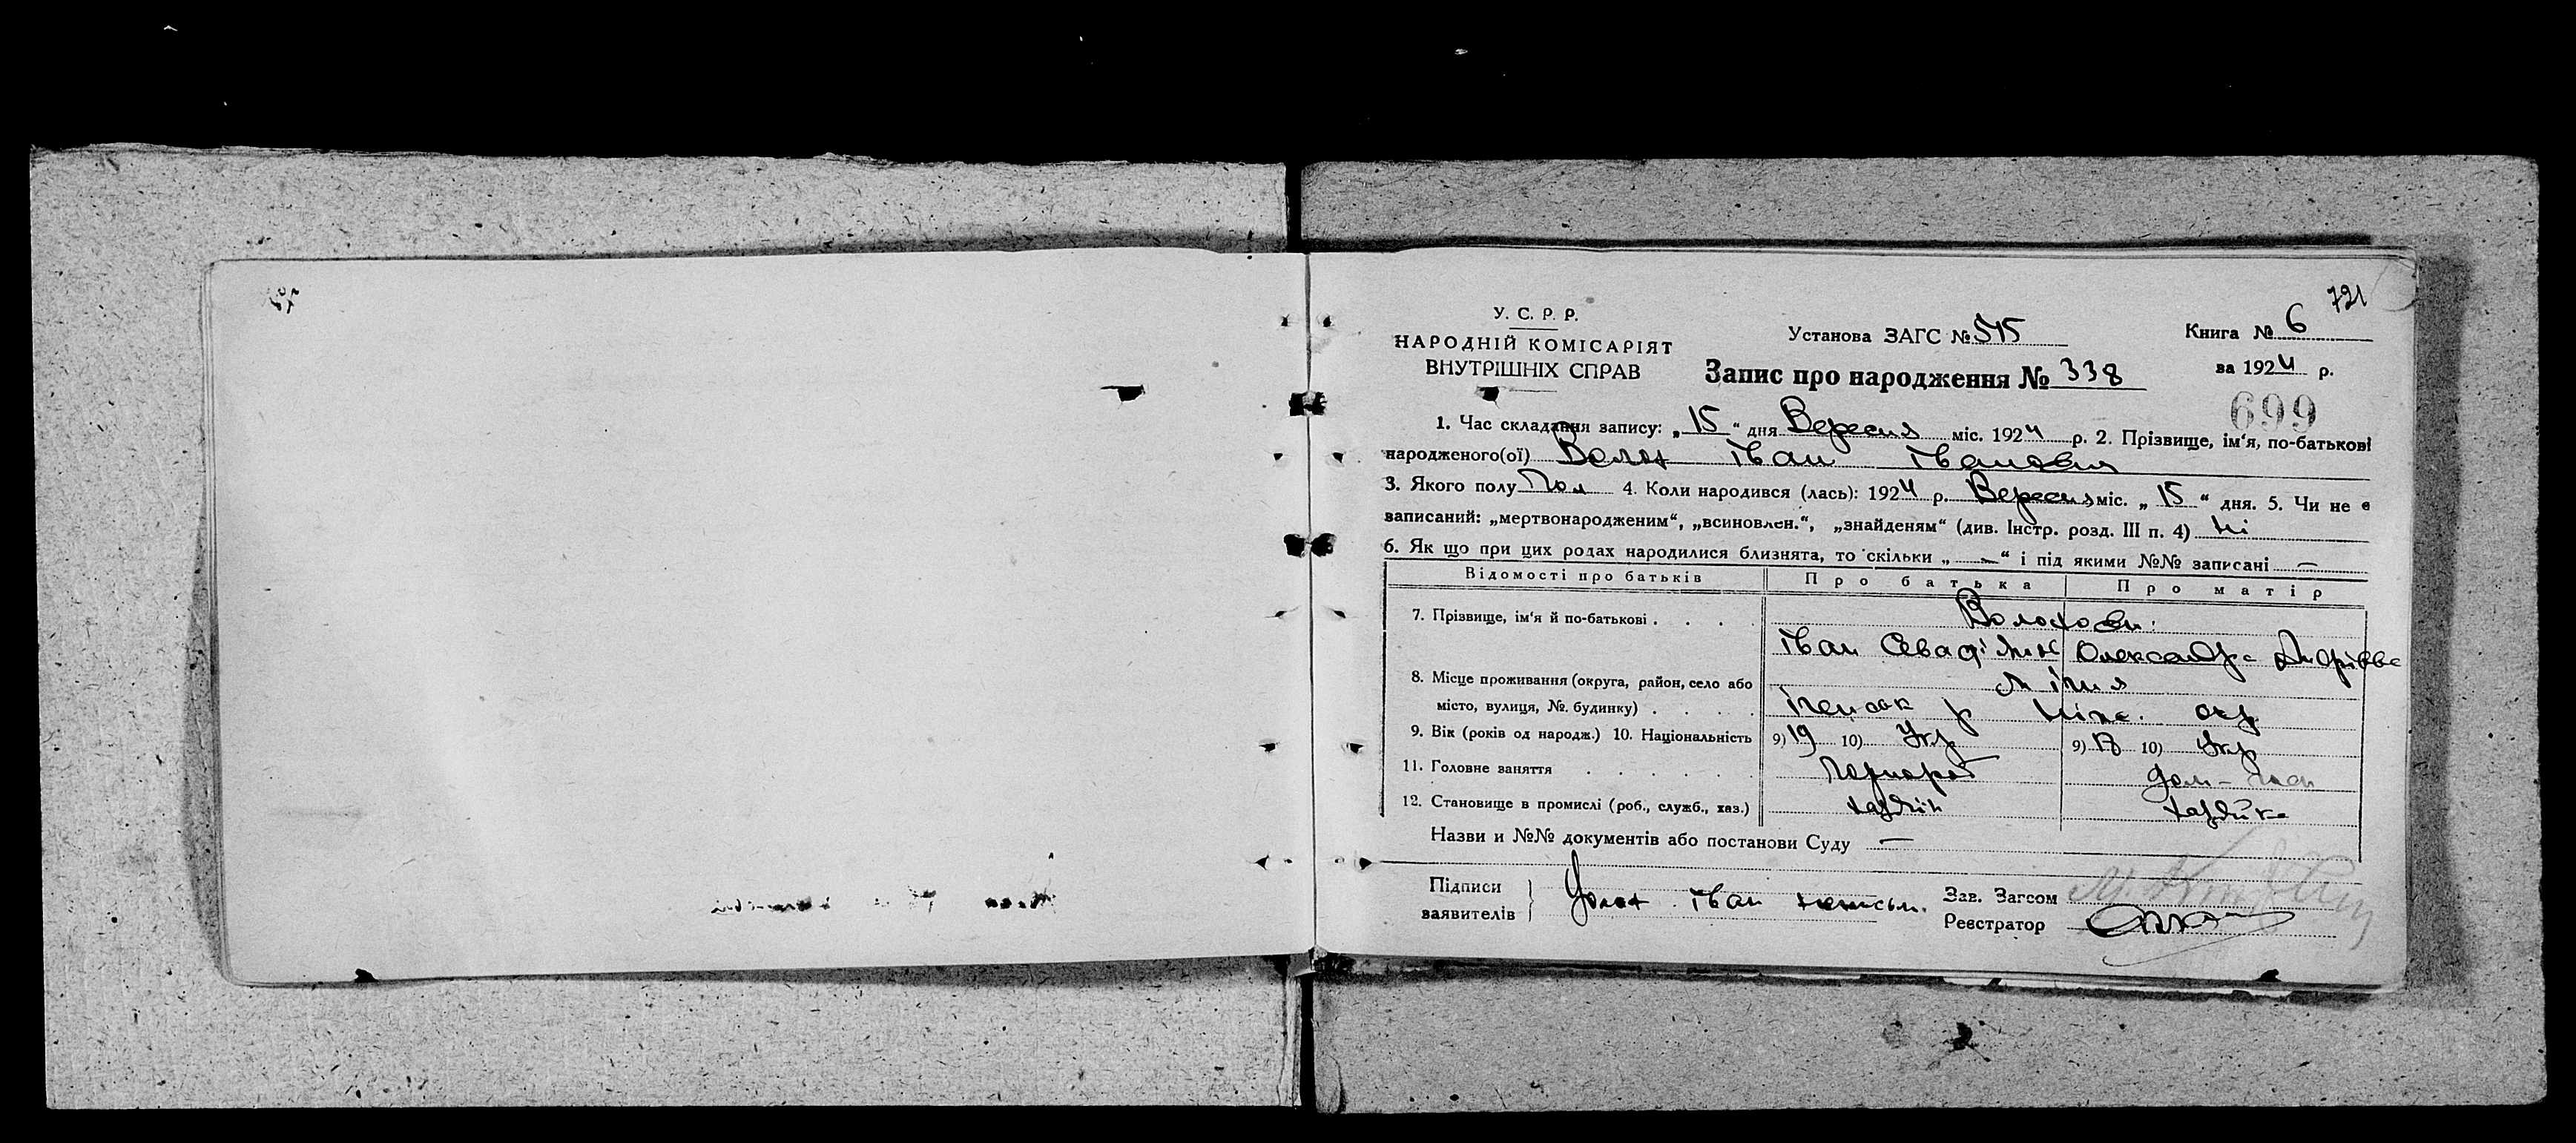 721
У. С. Р. Р.
НАРОДНІЙ КОМІСАРІЯТ
ВНУТРІШНІХ СПРАВ
Установа ЗАГС № 515
Книга № 6
Запис про народження № 338
за 1924 р.
699
1. Час складання запису: „ 15 “ дня Вересня міс. 1924 р. 2. Прізвище, ім‘я, по-батькові
народженого(ої) Волох Іван Іванович
3. Якого полу Чол 4. Коли народився (лась): 1924 р. Вересня міс. „ 15 “ дня. 5. Чи не є
записаний: „мертвонародженим“, „всиновлен.“, „знайденям“ (див. Інстр. розд. III п. 4) Ні
6. Як що при цих родах народилися близнята, то скільки „ — “ і під якими №№ записані —
Відомості про батьків Про батька Про матір
7. Прізвище, ім‘я й по-батькові . . . . Волохови
Іван Олександра
8. Місце проживання (округа, район, село або
місто, вулиця, №. будинку) . . . . р Ніже. окр
9. Вік (років од народж.) 10. Національність 9) 19 10) Укр 9) 10) Укр
11. Головне заняття . . . . . . Чорнороб дом-
12. Становище в промислі (роб., служб., хаз.) хазяїн хазяйка
Назви и №№ документів або постанови Суду —
Підписи
заявителів Волох Іван
Зав. Загсом
Реєстратор